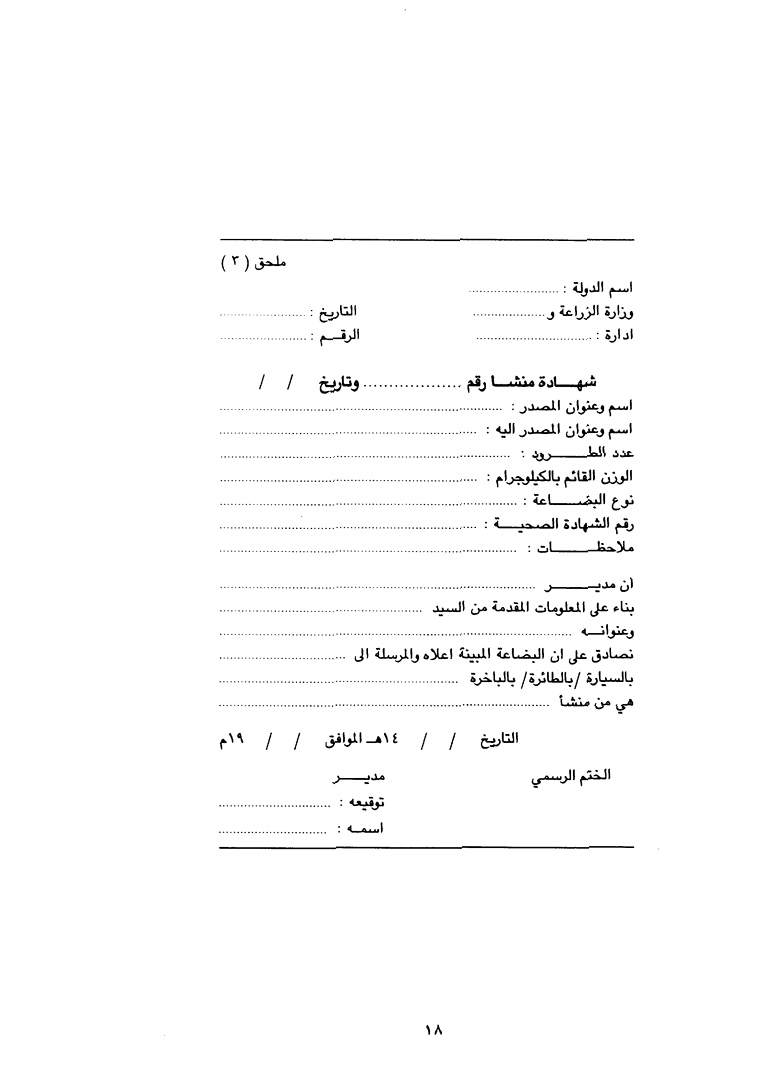 ملحق ( ٣ )
اسم الدولة : .........................
وزارة الزراعة و ....................
التاريخ : ........................
ادارة : ................................
الرقـم : ........................
شهـــادة منشـــا رقم ................... وتاريخ / /
اسم وعنوان المصدر : ................................................................
اسم وعنوان المصدر اليه : ................................................................
عدد الطــــــرود : ................................................................
الوزن القائم بالكيلوجرام : ................................................................
نوع البضـــــاعة : ................................................................
رقم الشهادة الصحيـــة : ................................................................
ملاحظـــــــات : ................................................................
أن مديـــــــر ................................................................
بناء على المعلومات المقدمة من السيد ................................................
وعنوانـــه ................................................................
نصادق على ان البضاعة المبينة اعلاه والمرسلة الى ................................
بالسيارة /بالطائرة/ بالباخرة ................................................
هي من منشأ ................................................................
التاريخ / / ١٤هـ الموافق / / ١٩م
الختم الرسمي
مديـــــر
توقيعه : ...............................
اسمـه : ..............................
١٨